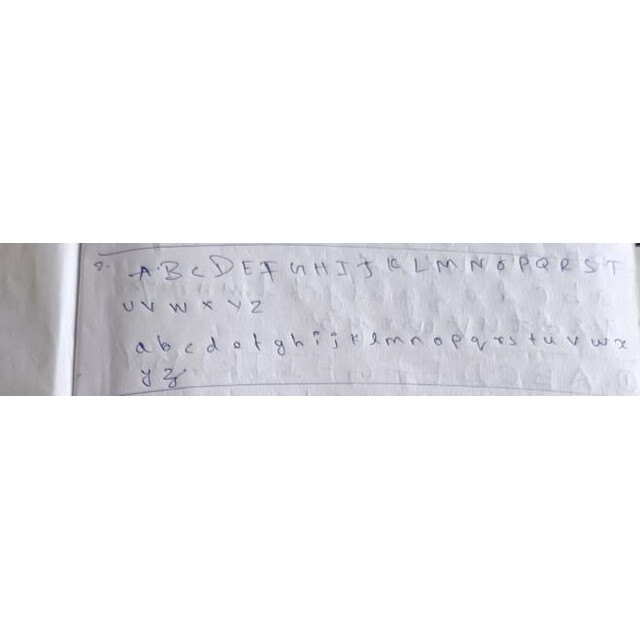 2. A B C D E F G H I J K L M N O P Q R S T
U V W X Y Z
a b c d e f g h i j k l m n o p q r s t u v w x
y z